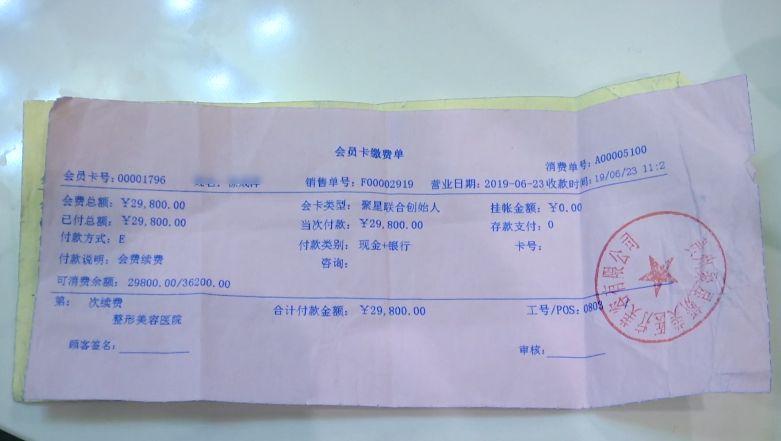 会员卡缴费单
消费单号: A00005100
会员卡号: 00001796 销售单号: F00002919 营业日期: 2019-06-23 收款时间: 19/06/23 11:2
会费总额: ¥29,800.00 会卡类型: 聚星联合创始人 挂帐金额: ¥0.00
已付总额: ¥29,800.00 当次付款: ¥29,800.00 存款支付: 0
付款方式: E 付款类别: 现金+银行 卡号:
付款说明: 会费续费 咨询:
可消费余额: 29800.00/36200.00
第: 次续费 合计付款金额: ¥29,800.00 工号/POS: 0803
整形美容医院
顾客签名: 审核: